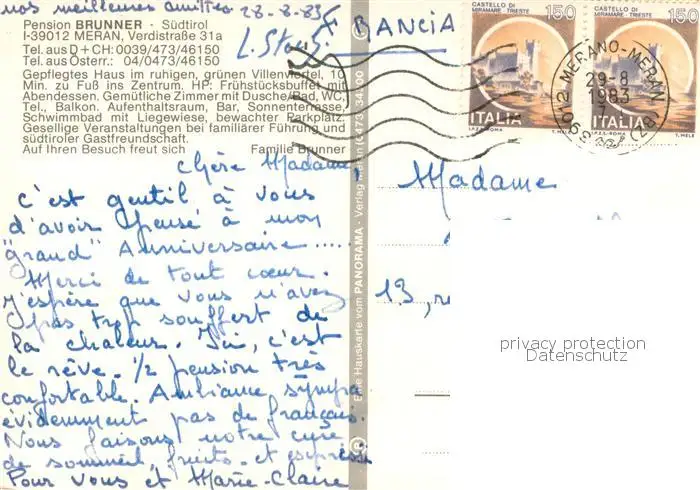 nos meilleures amitiés 28-8-83
Pension BRUNNER - Südtirol
I-39012 MERAN, Verdistraße 31a
Tel. aus D + CH: 0039/473/46150
Tel. aus Österr.: 04/0473/46150
Gepflegtes Haus im ruhigen, grünen Villenviertel, 10
Min. zu Fuß ins Zentrum. HP: Frühstücksbuffet mit
Abendessen. Gemütliche Zimmer mit Dusche/Bad, WC,
Tel., Balkon. Aufenthaltsraum, Bar, Sonnenterrasse,
Schwimmbad mit Liegewiese, bewachter Parkplatz.
Gesellige Veranstaltungen bei familiärer Führung und
südtiroler Gastfreundschaft.
Auf Ihren Besuch freut sich Familie Brunner
Chère Madame,
c'est gentil à vous
d'avoir pensé à mon
"grand" Anniversaire.....
Merci de tout cœur.
J'espère que vous n'avez
pas trop souffert de
la chaleur. Ici, c'est
le rêve. 1/2 pension très
confortable. Ambiance sympa
évidemment pas de français.
Nous faisons notre cure
de sommeil, fruits et
Pour vous et Marie-Claire
© Eine Hauskarte vom PANORAMA - Verlag Meran (0473) 34100
FRANCIA
CASTELLO DI MIRAMARE - TRIESTE 150
ITALIA
I.P.Z.S. - ROMA T. MELE
CASTELLO DI MIRAMARE - TRIESTE 150
ITALIA
I.P.Z.S. - ROMA T. MELE
39012 MERANO-MERAN (BZ)
29-8
1983
Madame
13, r
privacy protection
Datenschutz